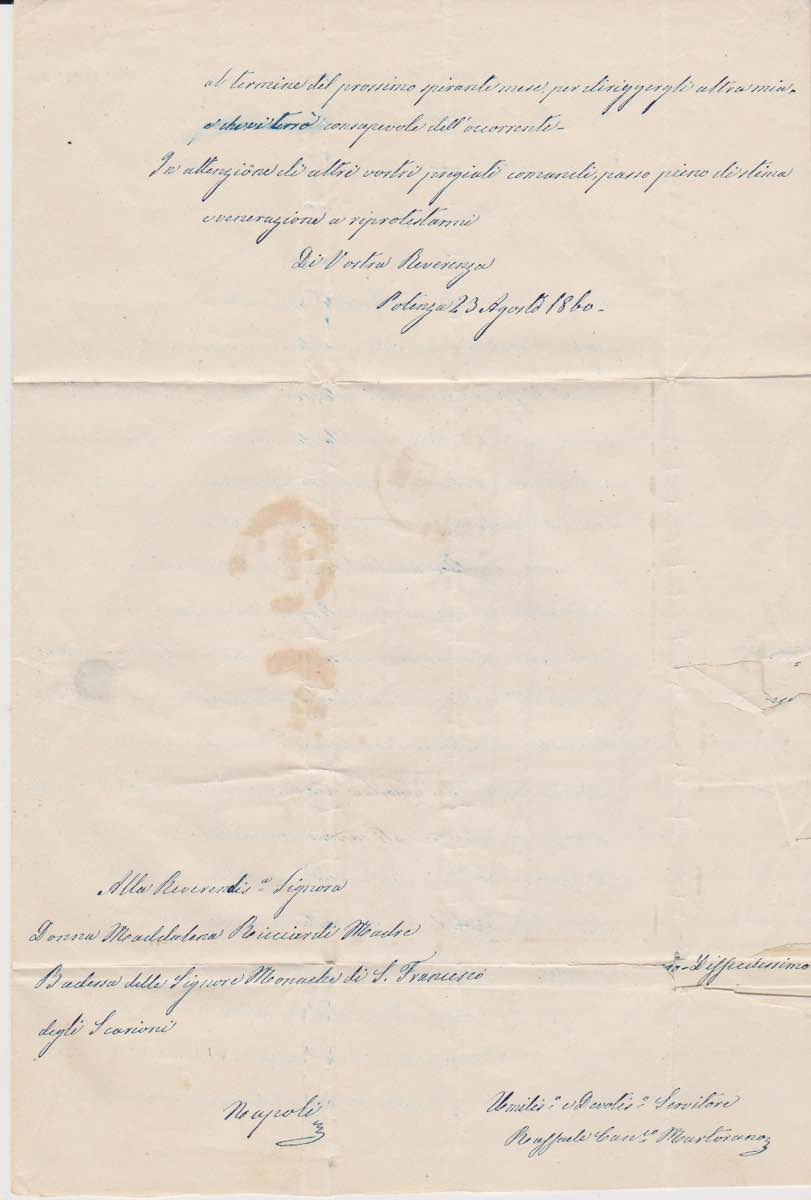 al termine del prossimo spirante mese, per diriggergli altra mia,
e che vi terrò consapevole dell'occorrente-
In attenzione di altri vostri pregiati comandi, passo pieno di stima
e venerazione a riprotestarmi
Di Vostra Reverenza
Potenza 23 Agosto 1860-
Alla Reverendis.ª Signora
Donna Maddalena Ricciardi Madre
Badessa delle Signore Monache di S. Francesco
degli Scarioni
Napoli
Umilis.º e Devotis.º Servitore
Raffaele Can.co Martorano